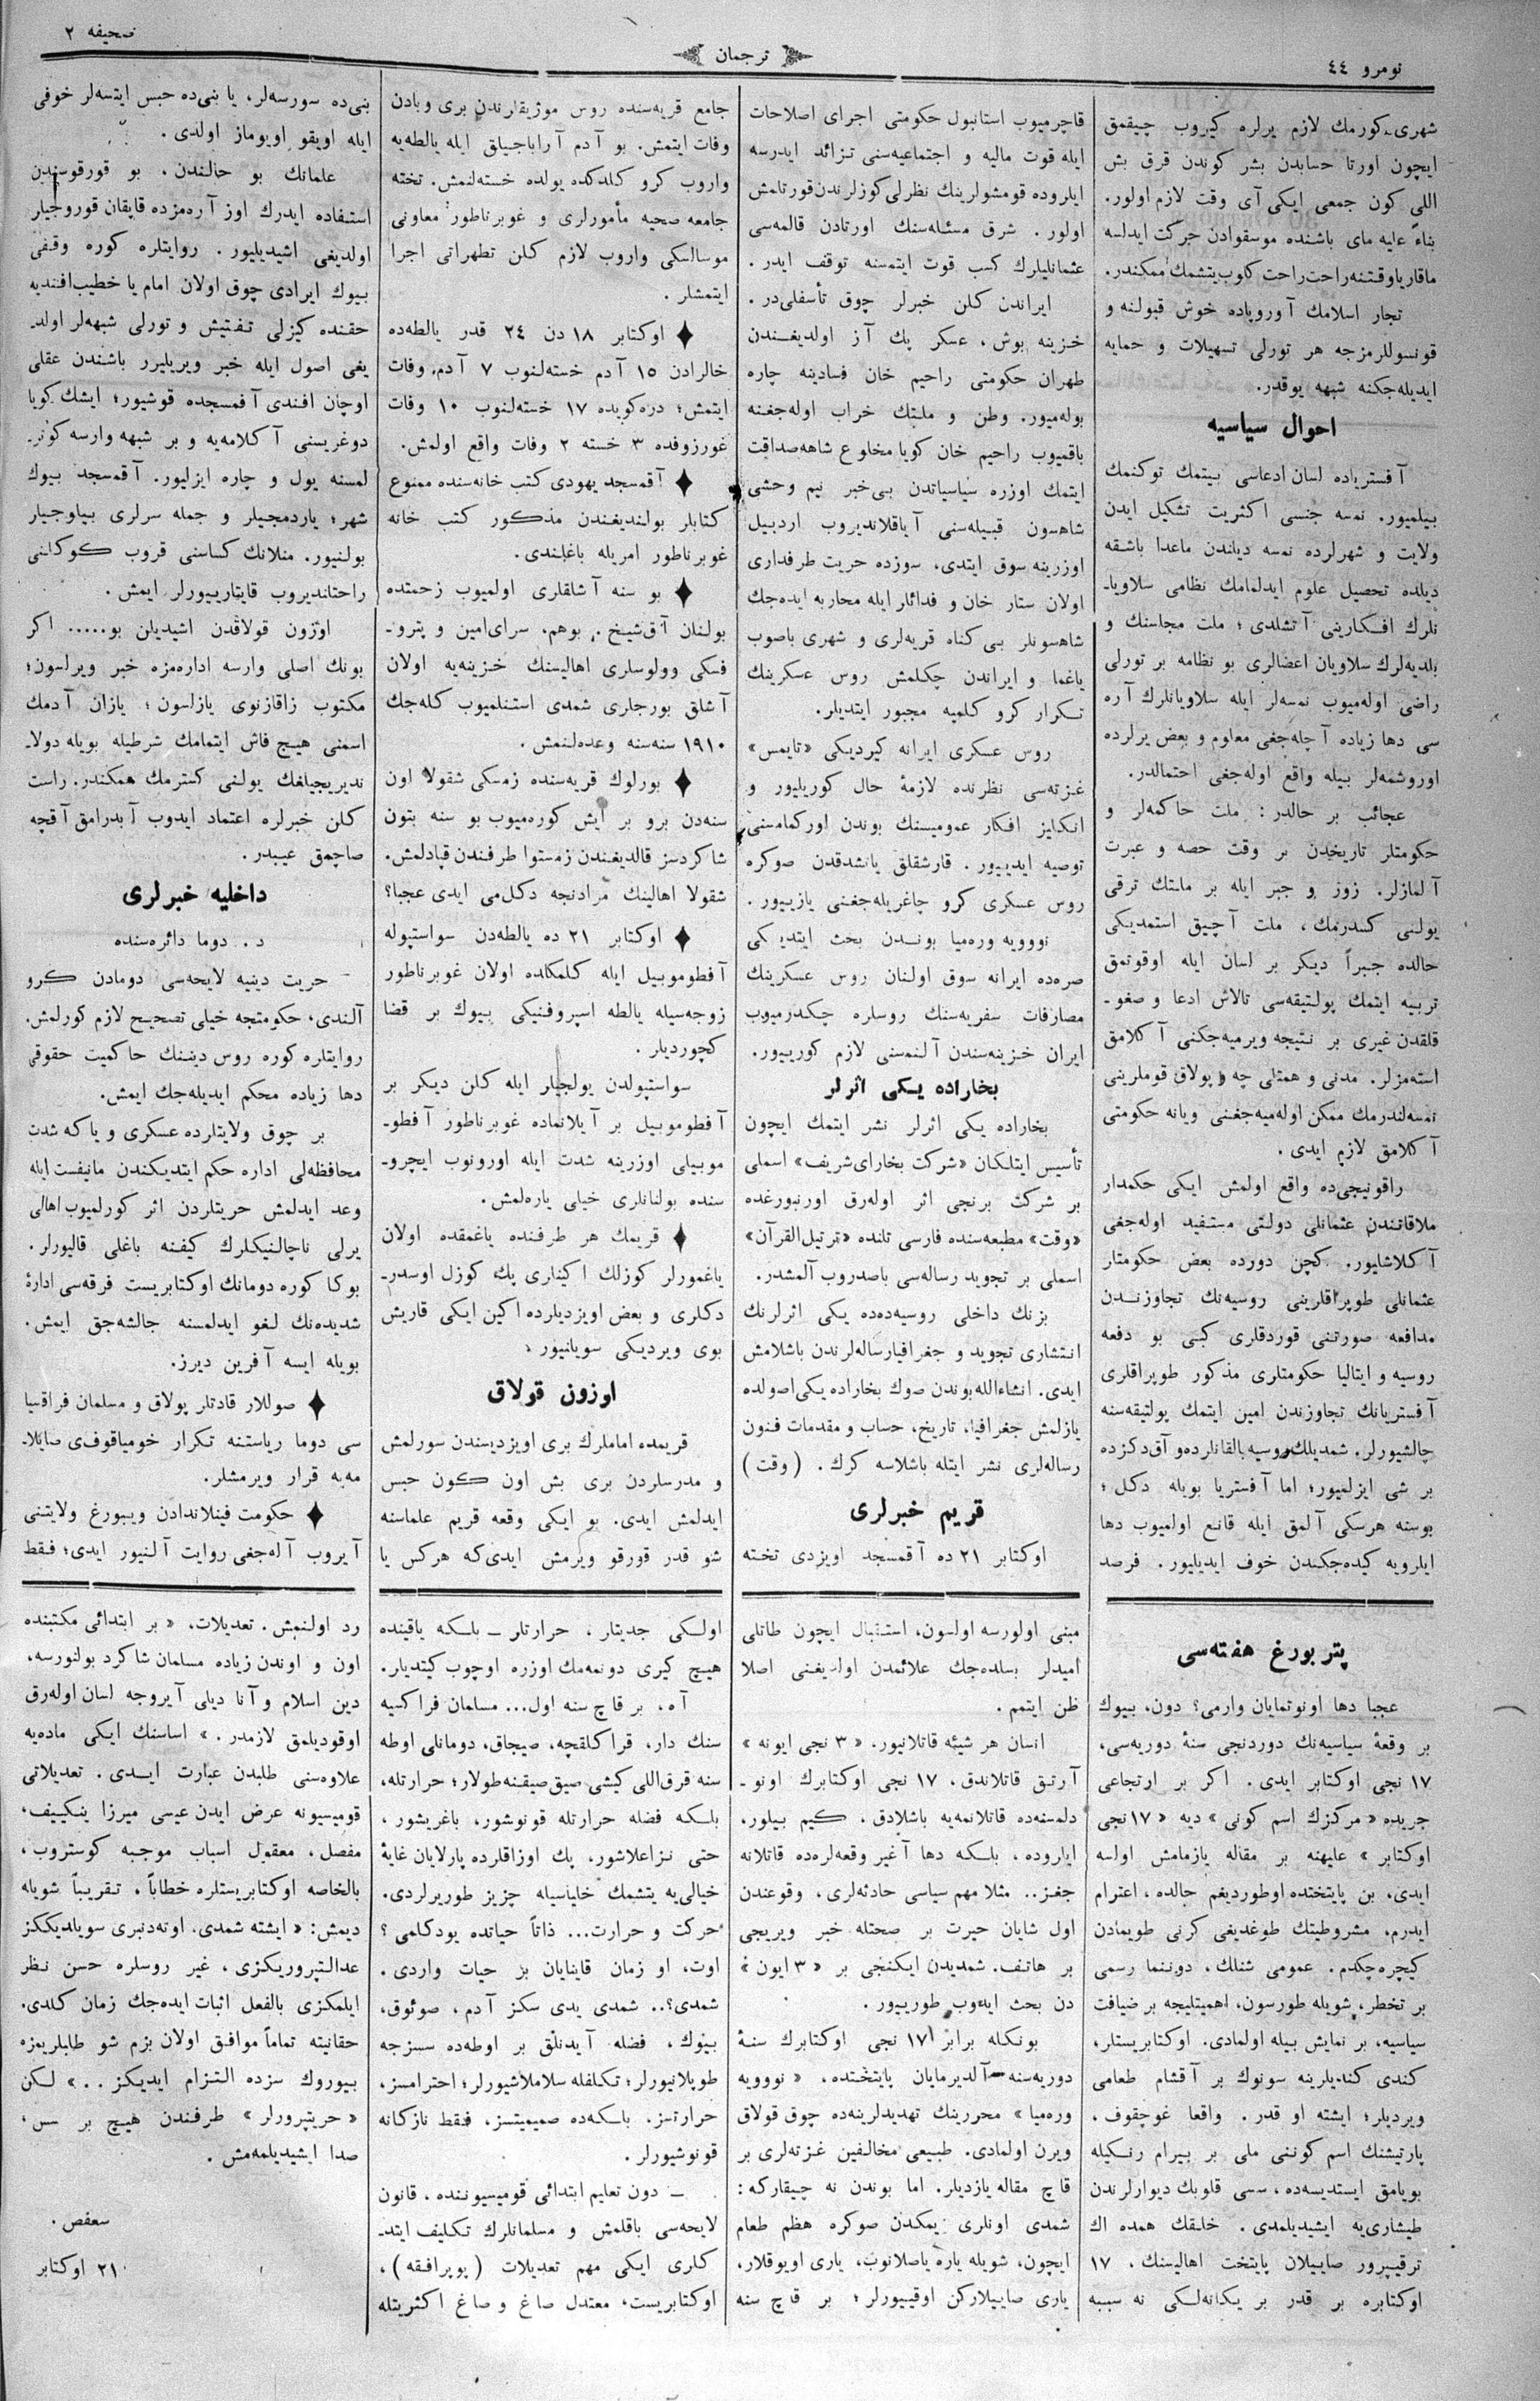 نومرو ٤٤
ترجمان
صحیفه ٢
شهری کورمك لازم یرلره کیروب چیقمق
ایچون اورتا حسابدن بشر کوندن قرق بش
اللی کون جمعی ایکی آی وقت لازم اولور.
بناءً علیه مای باشنده موسقوادن حرکت ایدلسه
ماقاریا وقتنه راحت راحت کلوب یتشمك ممکندر.
تجار اسلامك آوروپاده خوش قبولنه و
قونسوللرمزجه هر تورلی تسهیلات و حمایه
ایدیله‌جکنه شبهه یوقدر.
احوال سیاسیه
آفستریاده لسان ادعاسی بیتمك توکنمك
بیلمیور. نمسه جنسی اکثریت تشکیل ایدن
ولایت و شهرلرده نمسه دیلندن ماعدا باشقه
دیلده تحصیل علوم ایدلمامك نظامی سلاویا-
نلرك افکارینی آتشلدی؛ ملت مجلسنك و
بلدیه‌لرك سلاویان اعضالری بو نظامه بر تورلی
راضی اوله‌میوب نمسه‌لر ایله سلاویانلرك آره
سی دها زیاده آچله‌جغی معلوم و بعض یرلرده
اوروشمه‌لر بیله واقع اوله‌جغی احتمالدر.
عجائب بر حالدر: ملت حاکمه‌لر و
حکومتلر تاریخدن بر وقت حصه و عبرت
آلمازلر. زور و جبر ایله بر ملتك ترقی
یولنی کسدرنمك، ملت آچیق استمدیکی
حالده جبراً دیکر بر لسان ایله اوقوتمق
تربیه ایتمك پولتیقه‌سی تالاش ادعا و صغو-
قلقدن غیری بر نتیجه ویرمیه‌جکنی آکلامق
استه‌مزلر. مدنی و همتلی چه و پولاق قوملرینی
نمسه‌لندرمك ممکن اوله‌میه‌جغنی ویانه حکومتی
آکلامق لازم ایدی.
راقونیچی‌ده واقع اولمش ایکی حکمدار
ملاقاتندن عثمانلی دولتی مستفید اوله‌جغی
آکلاشلیور. کچن دورده بعض حکومتلر
عثمانلی طوپراقلرینی روسیه‌نك تجاوزندن
مدافعه صورتنی قوردقلری کبی بو دفعه
روسیه و ایتالیا حکومتلری مذکور طوپراقلری
آفستریانك تجاوزندن امین ایتمك پولتیقه‌سنه
چالشیورلر. شمدیلك روسیه بالقانلرده و آق دکزده
بر شی ایزلمیور؛ اما آفستریا بویله دکل؛
بوسنه هرسکی آلمق ایله قانع اولمیوب دها
ایلرویه کیده‌جکندن خوف ایدیلیور. فرصد
قاچرمیوب استانبول حکومتی اجرای اصلاحات
ایله قوت مالیه و اجتماعیه‌سنی تزائد ایدرسه
ایلروده قومشولرینك نظرلی کوزلرندن قورتلمش
اولور. شرق مسئله‌سنك اورتادن قالمه‌سی
عثمانلیلرك کسب قوت ایتمسنه توقف ایدر.
ایراندن کلن خبرلر چوق تأسفلی‌در.
خزینه بوش، عسکر پك آز اولدیغندن
طهران حکومتی راحیم خان فسادینه چاره
بوله‌میور. وطن و ملتك خراب اوله‌جغنه
باقمیوب راحیم خان کویا مخلوع شاهه صداقت
ایتمك اوزره سیاسیاتدن بی‌خبر نیم وحشی
شاهسون قبیله‌سنی آیاقلاندیروب اردبیل
اوزرینه سوق ایتدی، سوزده حریت طرفداری
اولان ستار خان و فدائلر ایله محاربه ایده‌جك
شاهسونلر بی کناه قریه‌لری و شهری باصوب
یاغما و ایراندن چکلمش روس عسکرینك
تکرار کرو کلمیه مجبور ایتدیلر.
روس عسکری ایرانه کیردیکی «تایمس»
غزته‌سی نظرنده لازمهٔ حال کوریلیور و
انکلیز افکار عمومیسنك بوندن اورکمامسنی
توصیه ایدییور. قارشقلق یاتشدقدن صوکره
روس عسکری کرو چاغریله‌جغنی یازییور.
نوویه وره‌میا بوندن بحث ایتدیکی
صره‌ده ایرانه سوق اولنان روس عسکرینك
مصارفات سفریه‌سنك روسلره چکدرمیوب
ایران خزینه‌سندن آلنمسنی لازم کورییور.
بخاراده یکی اثرلر
بخاراده یکی اثرلر نشر ایتمك ایچون
تأسیس ایتلکان «شرکت بخارای شریف» اسملی
بر شرکت برنجی اثر اوله‌رق اورنبورغده
«وقت» مطبعه‌سنده فارسی تلنده «ترتیل القرآن»
اسملی بر تجوید رساله‌سی باصدروب آلمشدر.
بزنك داخلی روسیه‌ده‌ده یکی اثرلرنك
انتشاری تجوید و جغرافیا رساله‌لرندن باشلامش
ایدی. انشاءالله بوندن صوك بخاراده یکی اصولده
یازلمش جغرافیا، تاریخ، حساب و مقدمات فنون
رساله‌لری نشر ایتله باشلاسه کرك. (وقت)
قریم خبرلری
اوکتابر ٢١ ده آقمسجد اویزدی تخته
جامع قریه‌سنده روس موژیقلرندن بری وبادن
وفات ایتمش. بو آدم آراباجیلق ایله یالطه‌یه
واروب کرو کلدکده یولده خسته‌لنمش. تخته
جامعه صحیه مأمورلری و غوبرناطور معاونی
موسالسکی واروب لازم کلن تطهراتی اجرا
ایتمشلر.
♦ اوکتابر ١٨ دن ٢٤ قدر یالطه‌ده
خالرادن ١٥ آدم خسته‌لنوب ٧ آدم وفات
ایتمش؛ دره‌کویده ١٧ خسته‌لنوب ١٠ وفات
غورزوفده ٣ خسته ٢ وفات واقع اولمش.
♦ آقمسجد یهودی کتب خانه‌سنده ممنوع
کتابلر بولندیغندن مذکور کتب خانه
غوبرناطور امریله باغلندی.
♦ بو سنه آشلقلری اولمیوب زحمتده
بولنان آق‌شیخ، بوهم، سرای‌امین و پترو-
فسکی وولوسلری اهالیسنك خزینه‌یه اولان
آشلق بورجلری شمدی استنلمیوب کله‌جك
١٩١٠ سنه‌سنه وعده‌لنمش.
♦ بورلوك قریه‌سنده زمسکی شقولا اون
سنه‌دن برو بر ایش کوره‌میوب بو سنه بتون
شاکردسز قالدیغندن زمستوا طرفندن قپادلمش.
شقولا اهالینك مرادنجه دکل‌می ایدی عجبا؟
♦ اوکتابر ٢١ ده یالطه‌دن سواستپوله
آفطوموبیل ایله کلمکده اولان غوبرناطور
زوجه‌سیله یالطه اسپروفنیکی بیوك بر قضا
کچوردیلر.
سواستپولدن یولجیلر ایله کلن دیکر بر
آفطوموبیل بر آیلانماده غوبرناطور آفطو-
موبیلی اوزرینه شدت ایله اورونوب ایچرو-
سنده بولنانلری خیلی یاره‌لمش.
♦ قریمك هر طرفنده یاغمقده اولان
یاغمورلر کوزلك اکینلری پك کوزل اوسدر-
دکلری و بعض اویزدیلرده اکین ایکی قاریش
بوی ویردیکی سویلنیور.
اوزون قولاق
قریمده اماملرك بری اویزدیسندن سورلمش
و مدرسلردن بری بش اون کون حبس
ایدلمش ایدی. بو ایکی وقعه قریم علماسنه
شو قدر قورقو ویرمش ایدی‌که هرکس یا
بنی‌ده سورسه‌لر، یا بنی‌ده حبس ایتسه‌لر خوفی
ایله اویقو اویوماز اولدی.
علمانك بو حالندن، بو قورقوسندن
استفاده ایدرك اوز آره‌مزده قاپقان قوروجیلر
اولدیغی اشیدیلیور. روایتلره کوره وقفی
بیوك ایرادی چوق اولان امام یا خطیب افندیه
حقنده کیزلی تفتیش و تورلی شبهه‌لر اولد-
یغی اصول ایله خبر ویریلیرر باشندن عقلی
اوچان افندی آقمسجده قوشیور؛ ایشك کویا
دوغریسنی آکلامه‌یه و بر شبهه وارسه کوتر-
لمسنه یول و چاره ایزلیور. آقمسجد بیوك
شهر؛ یاردمجیلر و جمله سرلری بیلوجیلر
بولنیور. منلانك کساسنی قروب کوکلنی
راحتلندیروب قایتارییورلر ایمش.
اوزون قولاقدن اشیدیلن بو..... اکر
بونك اصلی وارسه اداره‌مزه خبر ویرلسون؛
مکتوب زاقازنوی یازلسون؛ یازان آدمك
اسمنی هیچ فاش ایتمامك شرطیله بویله دولا-
ندیریجیلغك یولنی کسترمك همکندر. راست
کلن خبرلره اعتماد ایدوب آبدرامق آقچه
صاچمق عیبدر.
داخلیه خبرلری
د. دوما دائره‌سنده
حریت دینیه لایحه‌سی دومادن کرو
آلندی، حکومتجه خیلی تصحیح لازم کورلمش.
روایتلره کوره روس دینینك حاکمیت حقوقی
دها زیاده محکم ایدیله‌جك ایمش.
بر چوق ولایتلرده عسکری و یا که شدت
محافظه‌لی اداره حکم ایتدیکندن مانیفست ایله
وعد ایدلمش حریتلردن اثر کورلمیوب اهالی
یرلی ناچالنیکلرك کیفنه باغلی قالیورلر.
بوکا کوره دومانك اوکتابریست فرقه‌سی ادارهٔ
شدیده‌نك لغو ایدلمسنه چالشه‌جق ایمش.
بویله ایسه آفرین دیرز.
♦ صوللار قادتلر پولاق و مسلمان فراقسیا
سی دوما ریاستنه تکرار خومیاقوفی صایلا-
مه‌یه قرار ویرمشلر.
♦ حکومت فینلاندادن ویبورغ ولایتنی
آیروب آله‌جغی روایت آلنیور ایدی؛ فقط
پتربورغ هفته‌سی
عجبا دها اونوتمایان وارمی؟ دون، بیوك
بر وقعهٔ سیاسیه‌نك دوردنجی سنهٔ دوریه‌سی،
١٧ نجی اوکتابر ایدی. اکر بر ارتجاعی
جریده «مرکزك اسم کونی» دیه «١٧ نجی
اوکتابر» علیهنه بر مقاله یازمامش اولسه
ایدی، بن پایتختده اوطوردیغم حالده، اعتراف
ایدرم، مشروطیتك طوغدیغی کونی طویمادن
کیچره‌چکدم. عمومی شنلك، دوننما رسمی
بر تخطر، شویله طورسون، اهمیتلیجه بر ضیافت
سیاسیه، بر نمایش بیله اولمادی. اوکتابریستلر،
کندی کندیلرینه سونوك بر آقشام طعامی
ویردیلر؛ ایشته او قدر. واقعا غوچقوف،
پارتیشنك اسم کوننی ملی بر بیرام رنکیله
بویامق ایستدیسه‌ده، سسی قلوبك دیوارلرندن
طیشاری‌یه ایشیدیلمدی. خلقك همده اك
ترقیپرور صاییلان پایتخت اهالیسنك، ١٧
اوکتابره بر قدر بر یکانه‌لکی نه سببه
مبنی اولورسه اولسون، استقبال ایچون طاتلی
امیدلر بسلده‌جك علائمدن اولدیغنی اصلا
ظن ایتمم.
انسان هر شیئه قاتلانیور. «٣ نجی ایونه»
آرتق قاتلاندق، ١٧ نجی اوکتابرك اونو-
دلمسنه‌ده قاتلانمه‌یه باشلادق. کیم بیلور،
ایلروده، بلکه دها آغیر وقعه‌لره‌ده قاتلانه
جغز.. مثلا مهم سیاسی حادثه‌لری، وقوعندن
اول شایان حیرت بر صحتله خبر ویریجی
بر هاتف. شمدیدن ایکنجی بر «٣ ایون»
دن بحث ایدوب طوریيور.
بونکله برابر ١٧ نجی اوکتابرك سنهٔ
دوریه‌سنه آلدیرمایان پایتختده، «نوویه
وره‌میا» محررینك تهدیدلرینه‌ده چوق قولاق
ویرن اولمادی. طبیعی مخالفین غزته‌لری بر
قاچ مقاله یازدیلر. اما بوندن نه چیقارکه:
شمدی اونلری یمکدن صوکره هظم طعام
ایچون، شویله یاره یاصلانوب، یاری اویوقلار،
یاری صاییلارکن اوقییورلر؛ بر قاچ سنه
اولکی جدیتلر، حرارتلر — بلکه یاقینده
هیچ کیری دونمه‌مك اوزره اوچوب کیتدیلر.
آه، بر قاچ سنه اول... مسلمان فراکسیه
سنك دار، قراکلقچه، صیجاق، دومانلی اوطه
سنه قرق‌اللی کیشی صیق صیقنه طولار؛ حرارتله،
بلکه فضله حرارتله قونوشور، باغریشور،
حتی نزاعلاشور، پك اوزاقلرده پارلایان غایهٔ
خیالی‌یه یتشمك خلیاسیله چزیز طوریرلردی.
حرکت و حرارت... ذاتاً حیاتده یودکلمی؟
اوت، او زمان قاینایان بر حیات واردی.
شمدی؟.. شمدی یدی سکز آدم، صوئوق،
بیوك، فضله آیدنلق بر اوطه‌ده سسزجه
طوپلانیورلر؛ تکلفله سلاملاشیورلر؛ احترامسز،
حرارتسز. بلکه‌ده صمیمیتسز، فقط نازکانه
قونوشیورلر.
— دون تعلیم ابتدائی قومیسیوننده، قانون
لایحه‌سی باقلمش و مسلمانلرك تکلیف ایتد-
کلری ایکی مهم تعدیلات (پوپراقه)،
اوکتابریست، معتدل صاغ و صاغ اکثریتله
رد اولنمش. تعدیلات، «بر ابتدائی مکتبنده
اون و اوندن زیاده مسلمان شاکرد بولنورسه،
دین اسلام و آنا دیلی آیروجه لسان اوله‌رق
اوقودیلمق لازمدر.» اساسنك ایکی ماده‌یه
علاوه‌سنی طلبدن عبارت ایدی. تعدیلاتی
قومیسیونه عرض ایدن عیسی میرزا ینیکییف،
مفصل، معقول اسباب موجبه کوستروب،
بالخاصه اوکتابریستلره خطاباً، تقریباً شویله
دیمش: «ایشته شمدی. اوته‌دنبری سویلدیککز
عدالتپروریکزی، غیر روسلره حسن نظر
ایلمکزی بالفعل اثبات ایده‌جك زمان کلدی.
حقانیته تماماً موافق اولان بزم شو طلبلریمزه
بیوروك سزده التزام ایدیکز..» لکن
«حریتپرورلر» طرفندن هیچ بر سس،
صدا ایشیدیلمه‌مش.
سعفص.
٢١ اوکتابر